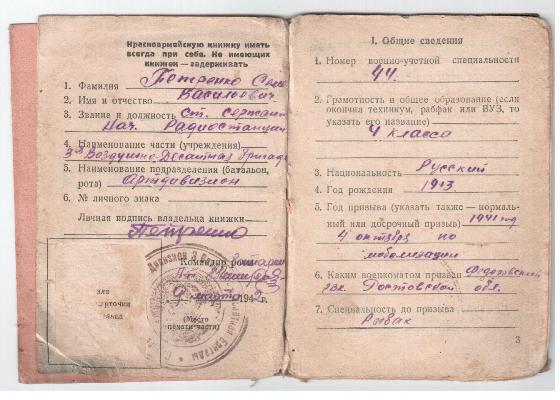 Красноармейскую книжку иметь
всегда при себе. Не имеющих
книжек — задерживать
1. Фамилия Петренко
2. Имя и отчество Васильевич
3. Звание и должность Ст. сержант
Нач. Радиостанции
4. Наименование части (учреждения)
3я Воздушно-Десантная бригада
5. Наименование подразделения (батальон,
рота) Артдивизион
6. № личного знака
Личная подпись владельца книжки
Петренко
Командир роты
марта 194 г.
(Место
печати части)
I. Общие сведения
1. Номер военно-учетной специальности
44
2. Грамотность и общее образование (если
окончил техникум, рабфак или ВУЗ, то
указать его название)
4 класса
3. Национальность Русский
4. Год рождения 1913
5. Год призыва (указать также — нормаль-
ный или досрочный призыв) 1941 год
4 октября по
мобилизации
6. Каким военкоматом призван
Ростовской обл.
7. Специальность до призыва
Рыбак
3